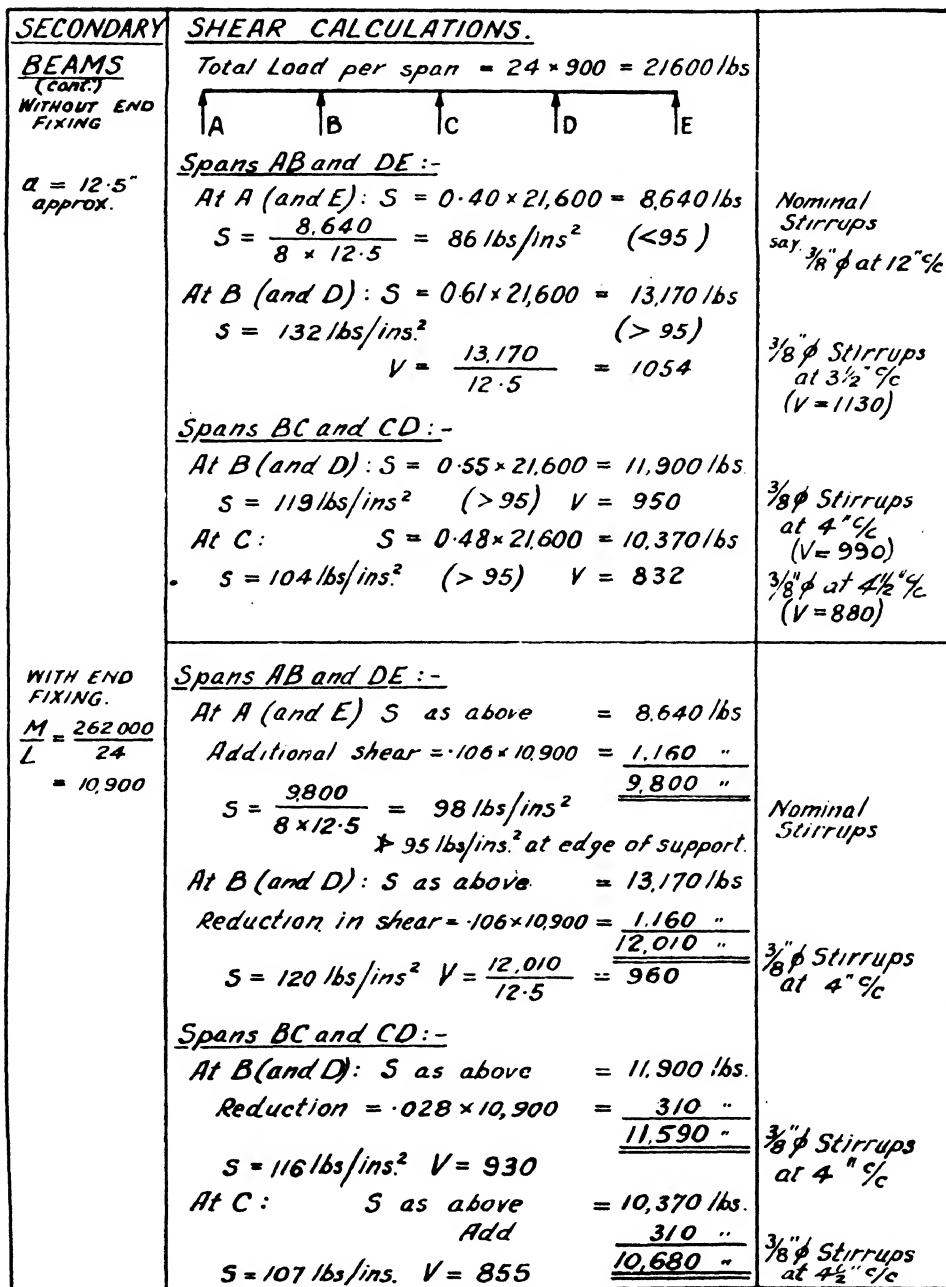 SECONDARY
BEAMS
(cont.)
WITHOUT END
FIXING
a = 12·5"
approx.
SHEAR CALCULATIONS.
Total Load per span = 24 × 900 = 21600 lbs
A B C D E
Spans AB and DE :-
At A (and E): S = 0·40 × 21,600 = 8,640 lbs
S = 8,640 / 8 × 12·5 = 86 lbs/ins² (<95)
Nominal
Stirrups
say. 3/8" ϕ at 12" c/c
At B (and D): S = 0·61 × 21,600 = 13,170 lbs
s = 132 lbs/ins.² (> 95)
V = 13,170 / 12·5 = 1054
3/8" ϕ Stirrups
at 3½" c/c
(V = 1130)
Spans BC and CD :-
At B (and D): S = 0·55 × 21,600 = 11,900 lbs.
s = 119 lbs/ins² (> 95) V = 950
3/8 ϕ Stirrups
at 4" c/c
(V = 990)
At C: S = 0·48 × 21,600 = 10,370 lbs
s = 104 lbs/ins.² (> 95) V = 832
3/8" ϕ at 4½" c/c
(V = 880)
WITH END
FIXING.
M/L = 262 000 / 24
= 10,900
Spans AB and DE :-
At A (and E) S as above = 8,640 lbs
Additional shear = ·106 × 10,900 = 1,160 "
9,800 "
S = 9,800 / 8 × 12·5 = 98 lbs/ins²
≯ 95 lbs/ins.² at edge of support.
Nominal
Stirrups
At B (and D): S as above = 13,170 lbs
Reduction in shear = ·106 × 10,900 = 1,160 "
12,010 "
S = 120 lbs/ins² V = 12,010 / 12·5 = 960
3/8" ϕ Stirrups
at 4" c/c
Spans BC and CD :-
At B (and D): S as above = 11,900 lbs.
Reduction = ·028 × 10,900 = 310 "
11,590 "
s = 116 lbs/ins.² V = 930
3/8" ϕ Stirrups
at 4" c/c
At C: S as above = 10,370 lbs.
Add 310 "
10,680 "
S = 107 lbs/ins. V = 855
3/8" ϕ Stirrups
at 4½" c/c